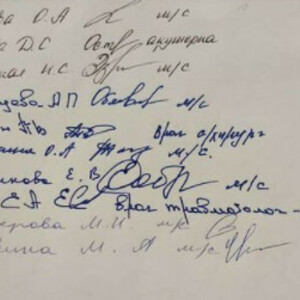 ва О.А м/с
а Д.С акушерка
ская Н.С м/с
дова А П м/с
н ТВ врач а/хирург
ина О.А м/с.
икова Е. В м/с
Е А врач травматолог -
перова М.И. м/с
ина М. А м/с